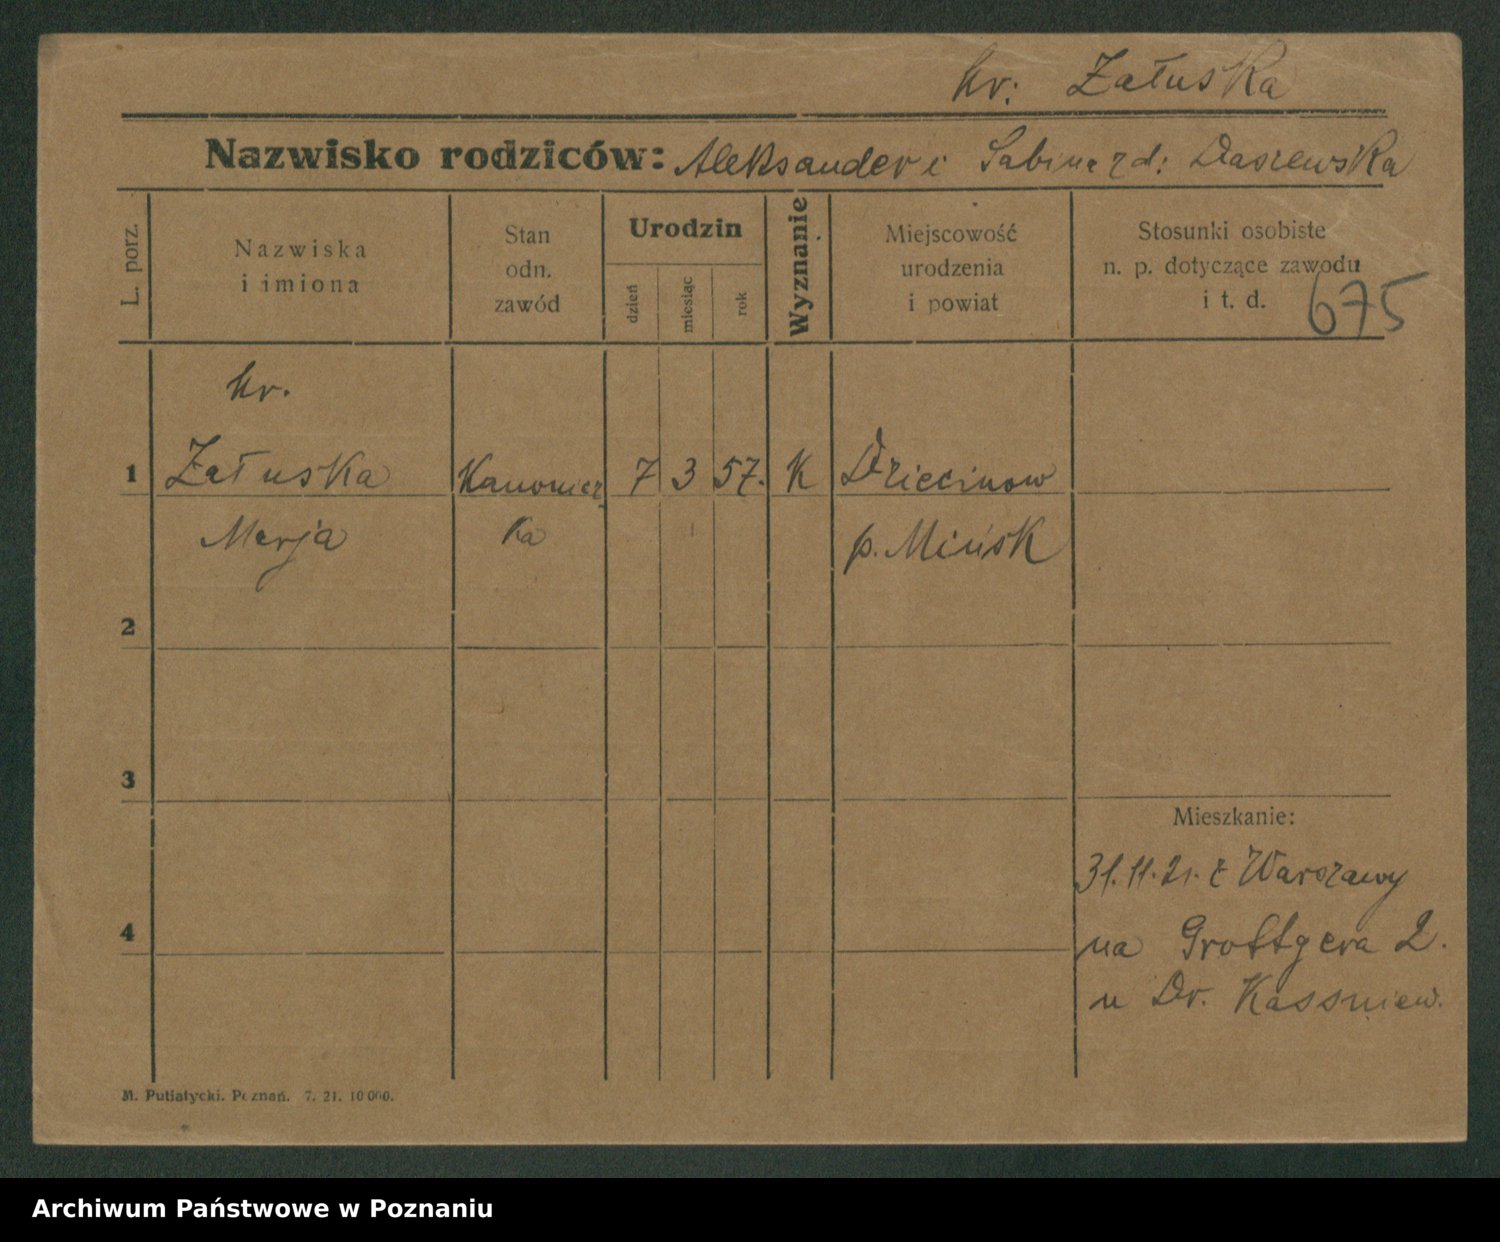 hr. Załuska
Nazwisko rodziców: Aleksander i Sabina zd: Daszewska
L. porz.
Nazwiska
i imiona
Stan
odn.
zawód
Urodzin
dzień
miesiąc
rok
Wyznanie
Miejscowość
urodzenia
i powiat
Stosunki osobiste
n. p. dotyczące zawodu
i t. d.
675
hr.
1 Załuska Kanonicz 7 3 57. K Dziecinow
Marja ka p. Mińsk
2
3
Mieszkanie:
31.11.21. z Warszawy
4
na Grottgera 2.
u Dr.
M. Putiatycki. Poznań. 7. 21. 10 000.
Archiwum Państwowe w Poznaniu